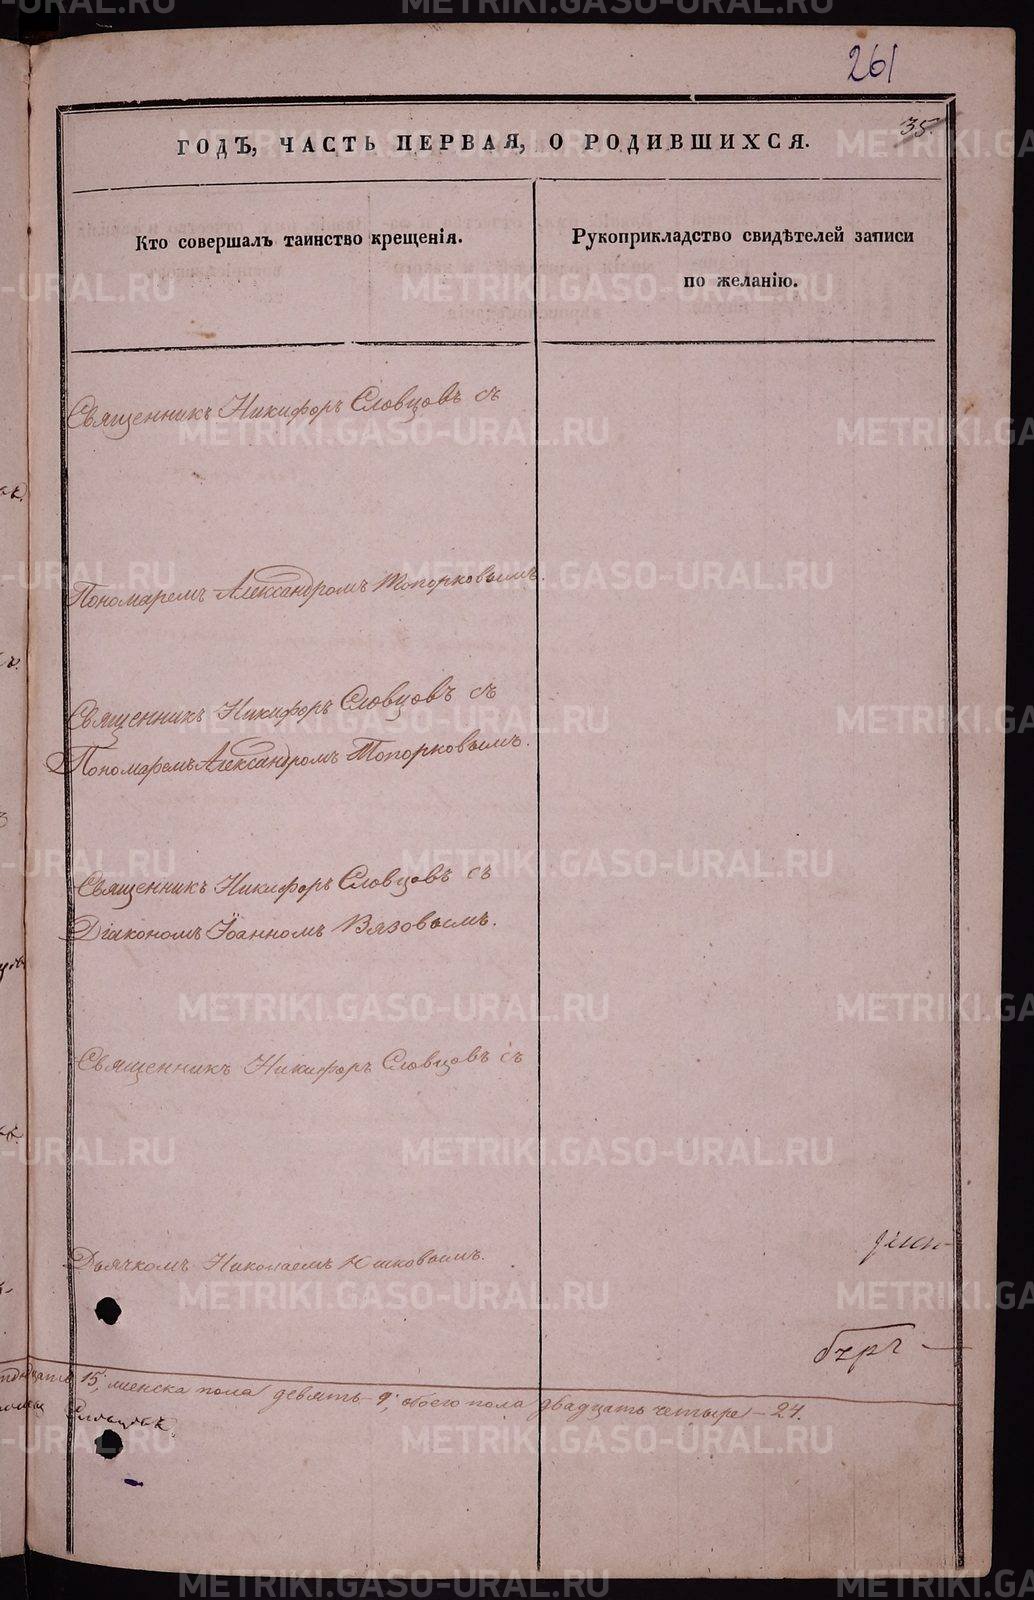 261
35.
ГОДЪ, ЧАСТЬ ПЕРВАЯ, О РОДИВШИХСЯ.
Кто совершалъ таинство крещенія.
Рукоприкладство свидѣтелей записи
по желанію.
Священникъ Никифоръ Словцовъ съ
Пономаремъ Александромъ Топорковымъ.
Священникъ Никифоръ Словцовъ съ
Пономаремъ Александромъ Топорковымъ.
Священникъ Никифоръ Словцовъ съ
Діакономъ Іоанномъ Вязовымъ.
Священникъ Никифоръ Словцовъ съ
Дьячкомъ Николаемъ Юшковымъ.
15, женска пола девять 9, обоего пола двадцать четыре – 24.
METRIKI.GASO-URAL.RU